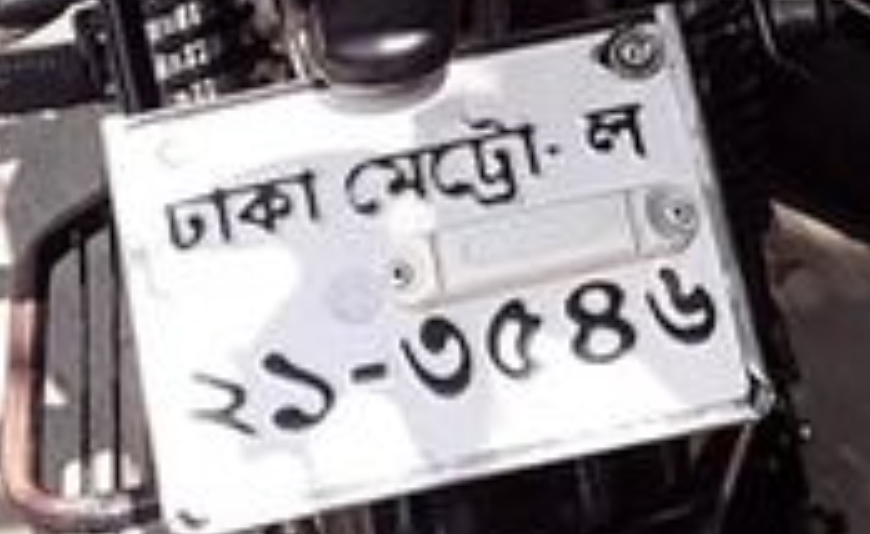 ঢাকা মেট্রো- ল
২১-৩৫৪৬